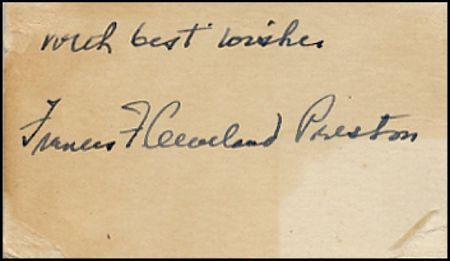 with best wishes
Frances F Cleveland Preston